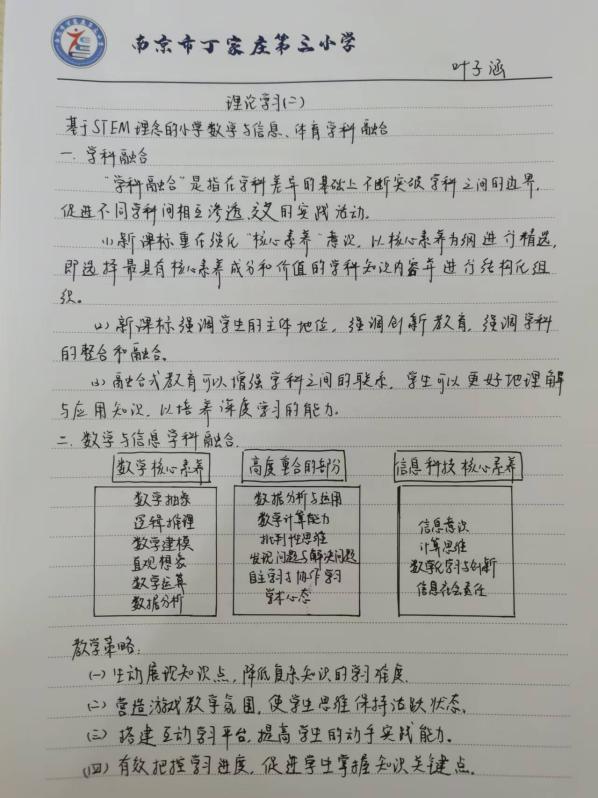 南京市丁家庄第三小学
叶子涵
理论学习(二)
基于STEM理念的小学数学与信息、体育学科融合
一. 学科融合
"学科融合"是指在学科差异的基础上不断突破学科之间的边界,
促进不同学科间相互渗透、交叉的实践活动。
(1)新课标重在强化"核心素养"意识, 以核心素养为纲进行精选,
即选择最具有核心素养成分和价值的学科知识内容并进行结构化组
织。
(2) 新课标强调学生的主体地位, 强调创新教育, 强调学科
的整合和融合。
(3) 融合式教育可以增强学科之间的联系, 学生可以更好地理解
与应用知识, 以培养深度学习的能力。
二. 数学与信息学科融合.
数学核心素养
数学抽象
逻辑推理
数学建模
直观想象
数学运算
数据分析
高度重合的部分
数据分析与运用
数学计算能力
批判性思维
发现问题与解决问题
自主学习与协作学习
学术心态
信息科技核心素养
信息意识
计算思维
数字化学习与创新
信息社会责任
教学策略:
(一) 生动展现知识点, 降低复杂知识的学习难度.
(二) 营造游戏教学氛围, 使学生思维保持活跃状态.
(三) 搭建互动学习平台, 提高学生的动手实践能力.
(四) 有效把控学习进度, 促进学生掌握知识关键点.